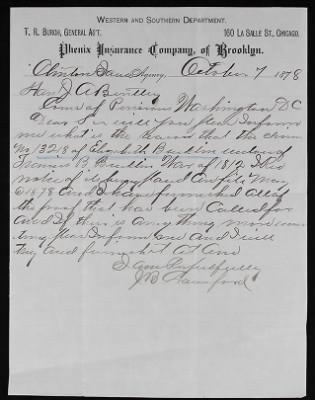 WESTERN AND SOUTHERN DEPARTMENT.
T. R. BURCH, GENERAL AG'T. 160 LA SALLE ST., CHICAGO.
Phenix Insurance Company, of Brooklyn.
Clinton Agency, October 7 1878
Hon J A Bentley
Com of Pensions Washington DC
Dear Sir will you please Inform
me what is the reason that the claim
No 13218 of Elizabeth widow of
Francis B War of 1812 I
notice of its May
6 1878 and I have furnished all of
the proof that has been Called for
and If there is any thing more
please Inform me and I will
try and furnish at once
I am Respectfully
J B